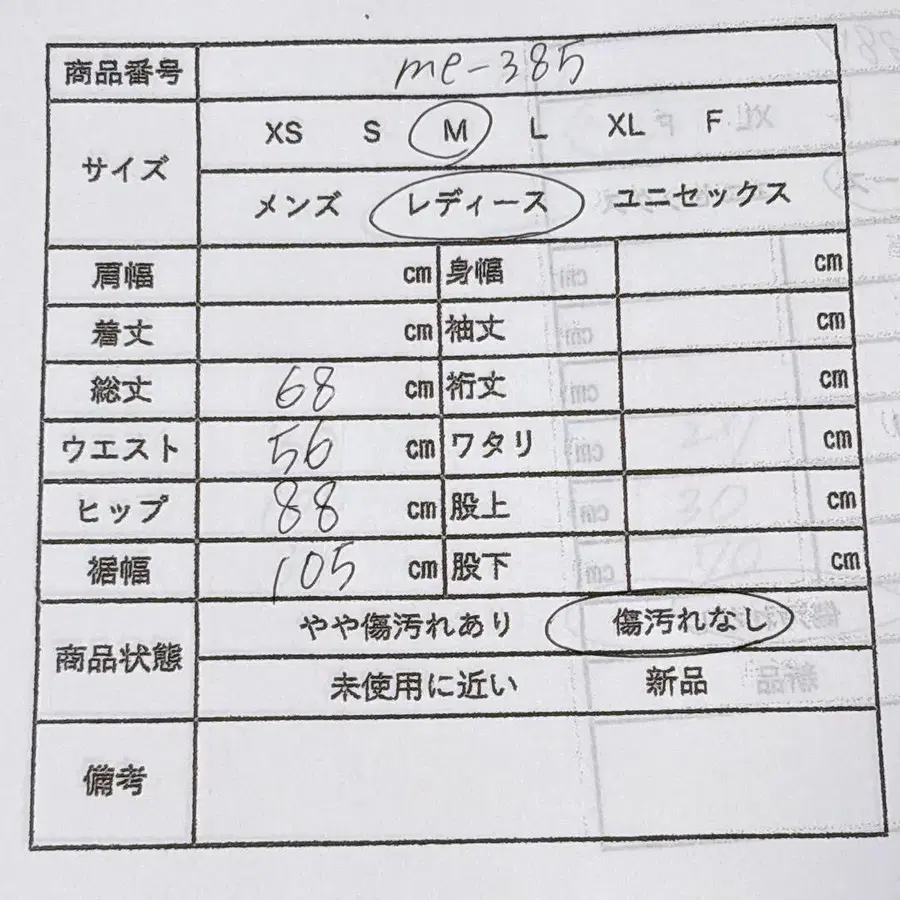 商品番号 me-385
サイズ XS S M L XL F
メンズ レディース ユニセックス
肩幅 cm 身幅 cm
着丈 cm 袖丈 cm
総丈 68 cm 裄丈 cm
ウエスト 56 cm ワタリ cm
ヒップ 88 cm 股上 cm
裾幅 105 cm 股下 cm
商品状態 やや傷汚れあり 傷汚れなし
未使用に近い 新品
備考